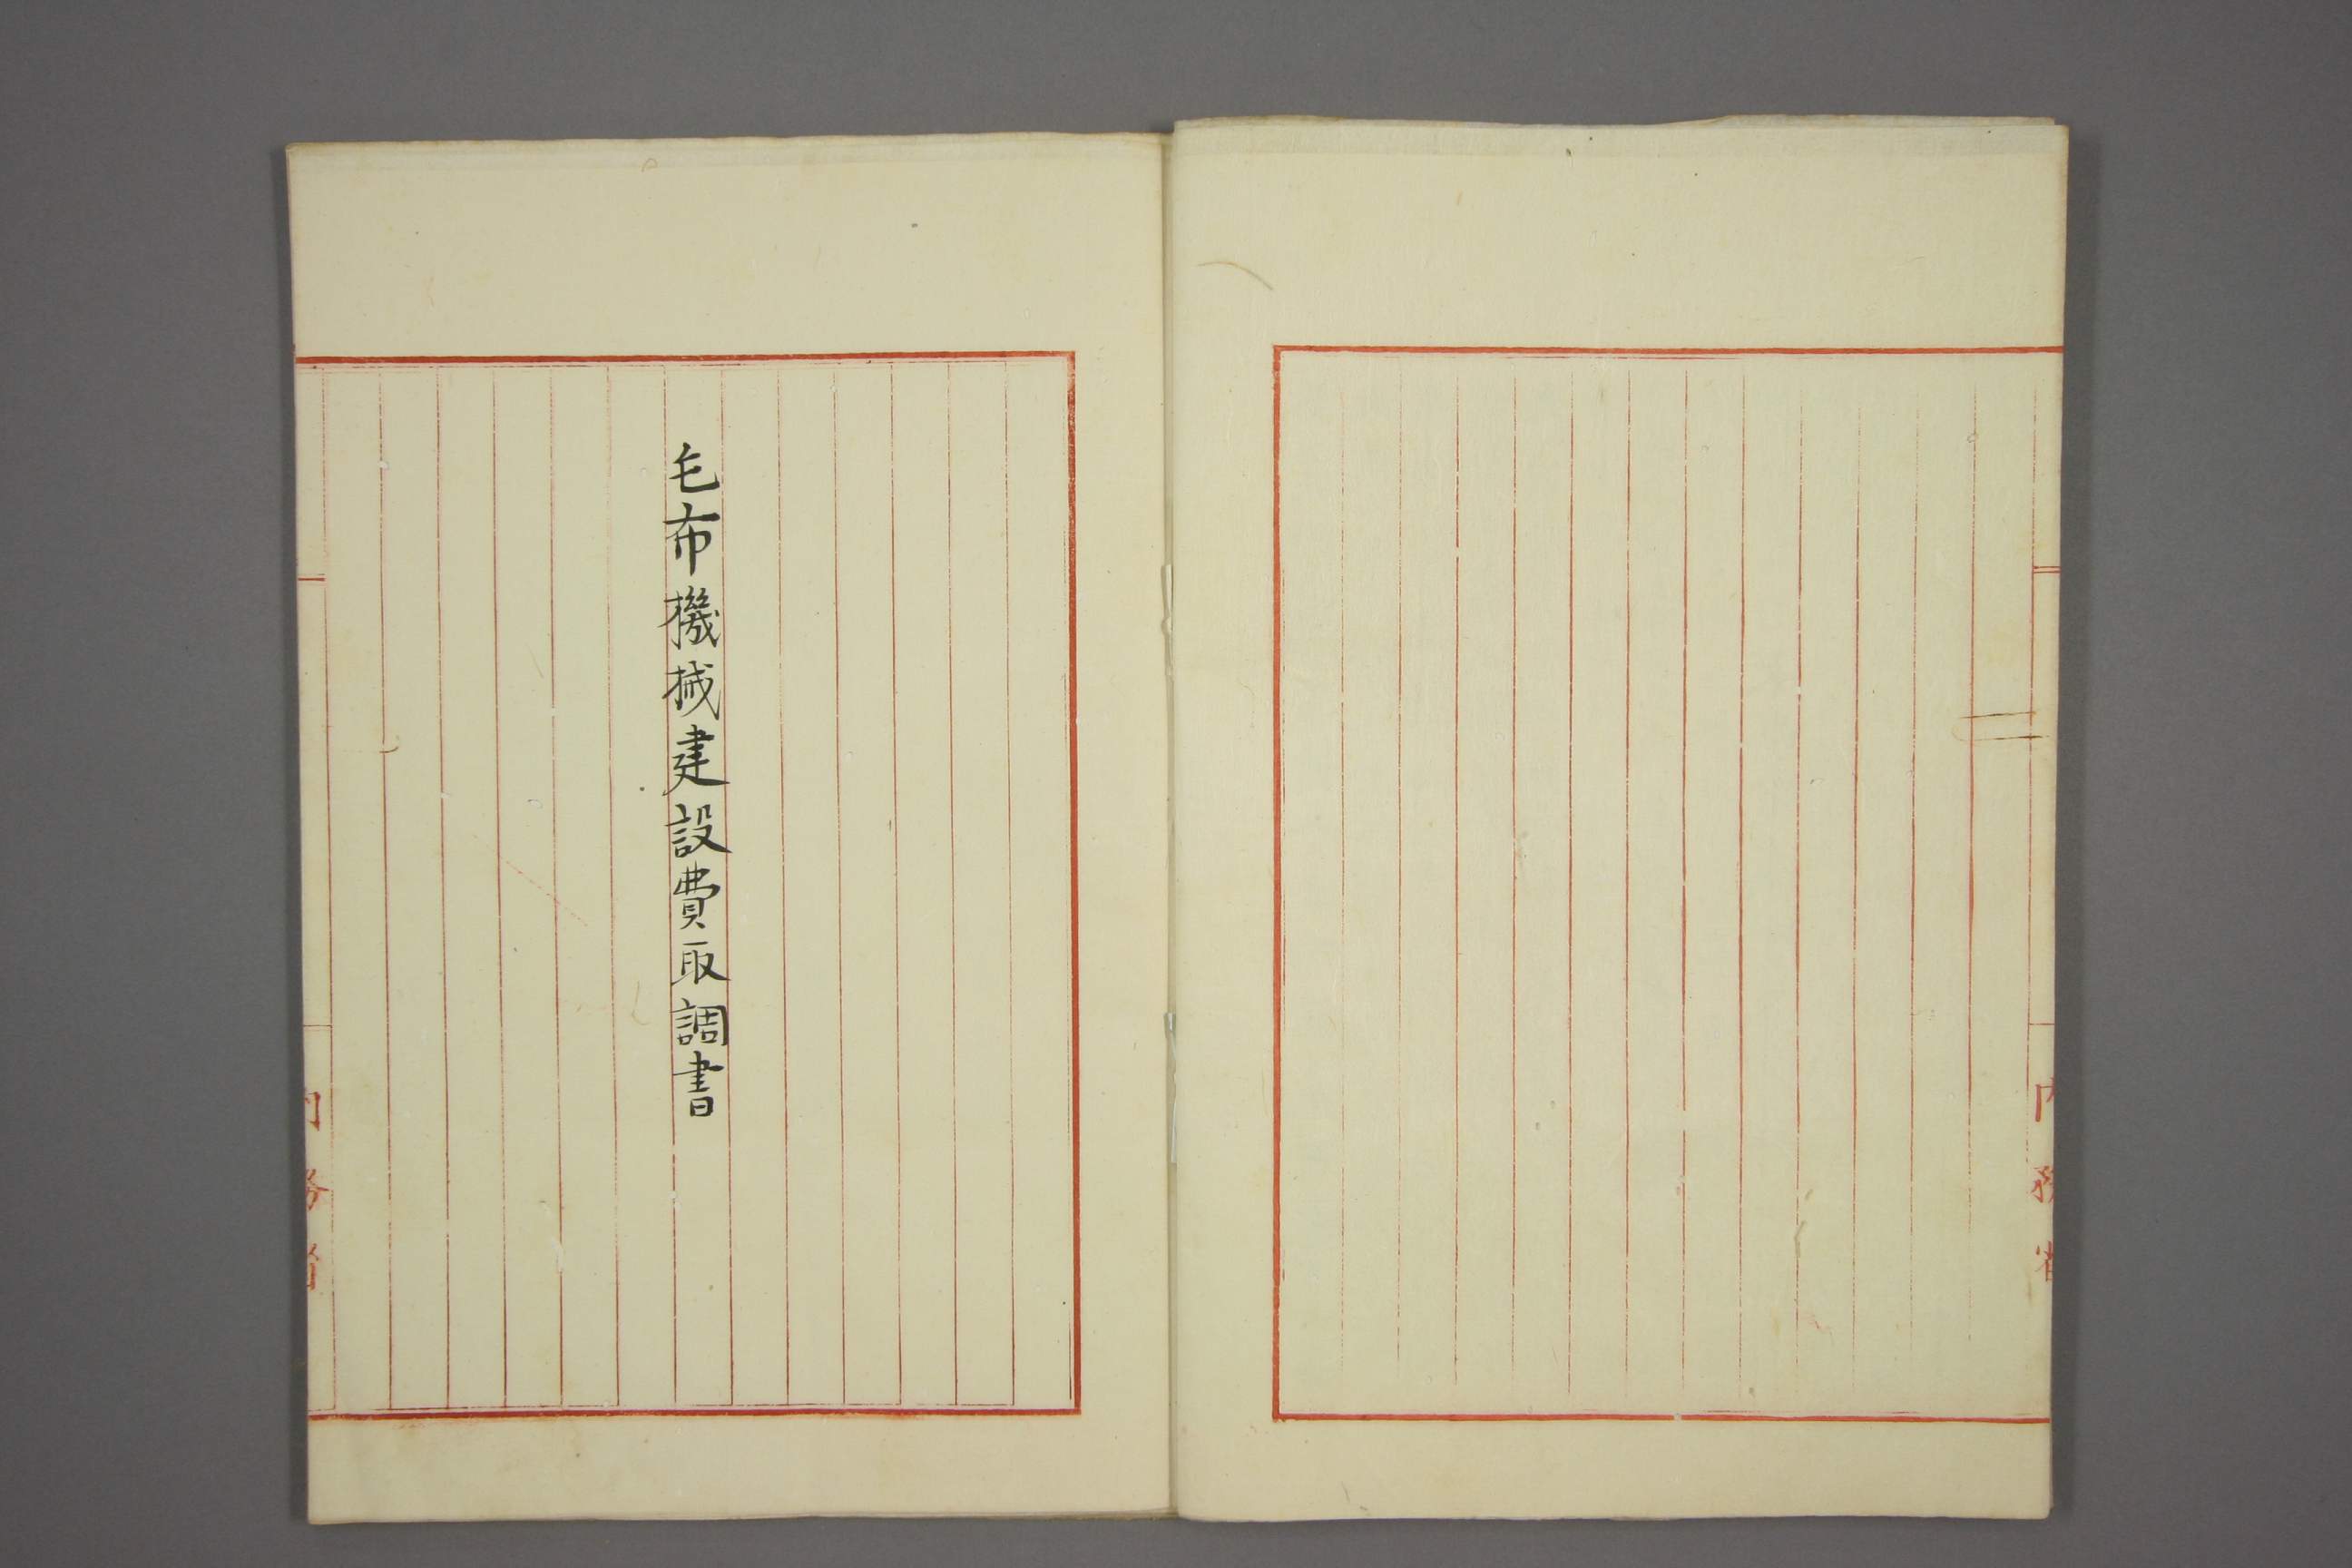 内務省
毛布機械建設費取調書
内務省